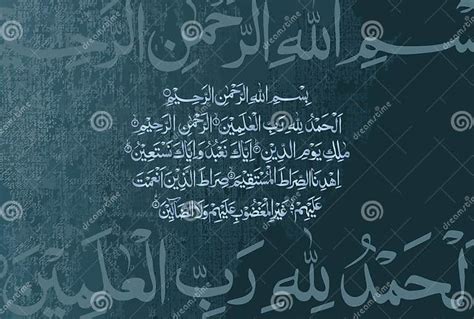 بِسْمِ اللهِ الرَّحْمٰنِ الرَّحِيْمِ
بِسْمِ اللهِ الرَّحْمٰنِ الرَّحِيْمِ
اَلْحَمْدُ لِلّٰهِ رَبِّ الْعٰلَمِيْنَ الرَّحْمٰنِ الرَّحِيْمِ
مٰلِكِ يَوْمِ الدِّيْنِ اِيَّاكَ نَعْبُدُ وَاِيَّاكَ نَسْتَعِيْنُ
اِهْدِنَا الصِّرَاطَ الْمُسْتَقِيْمَ صِرَاطَ الَّذِيْنَ اَنْعَمْتَ
عَلَيْهِمْ غَيْرِ الْمَغْضُوْبِ عَلَيْهِمْ وَلَا الضَّآلِّيْنَ
اَلْحَمْدُ لِلّٰهِ رَبِّ الْعٰلَمِيْنَ
dreamstime